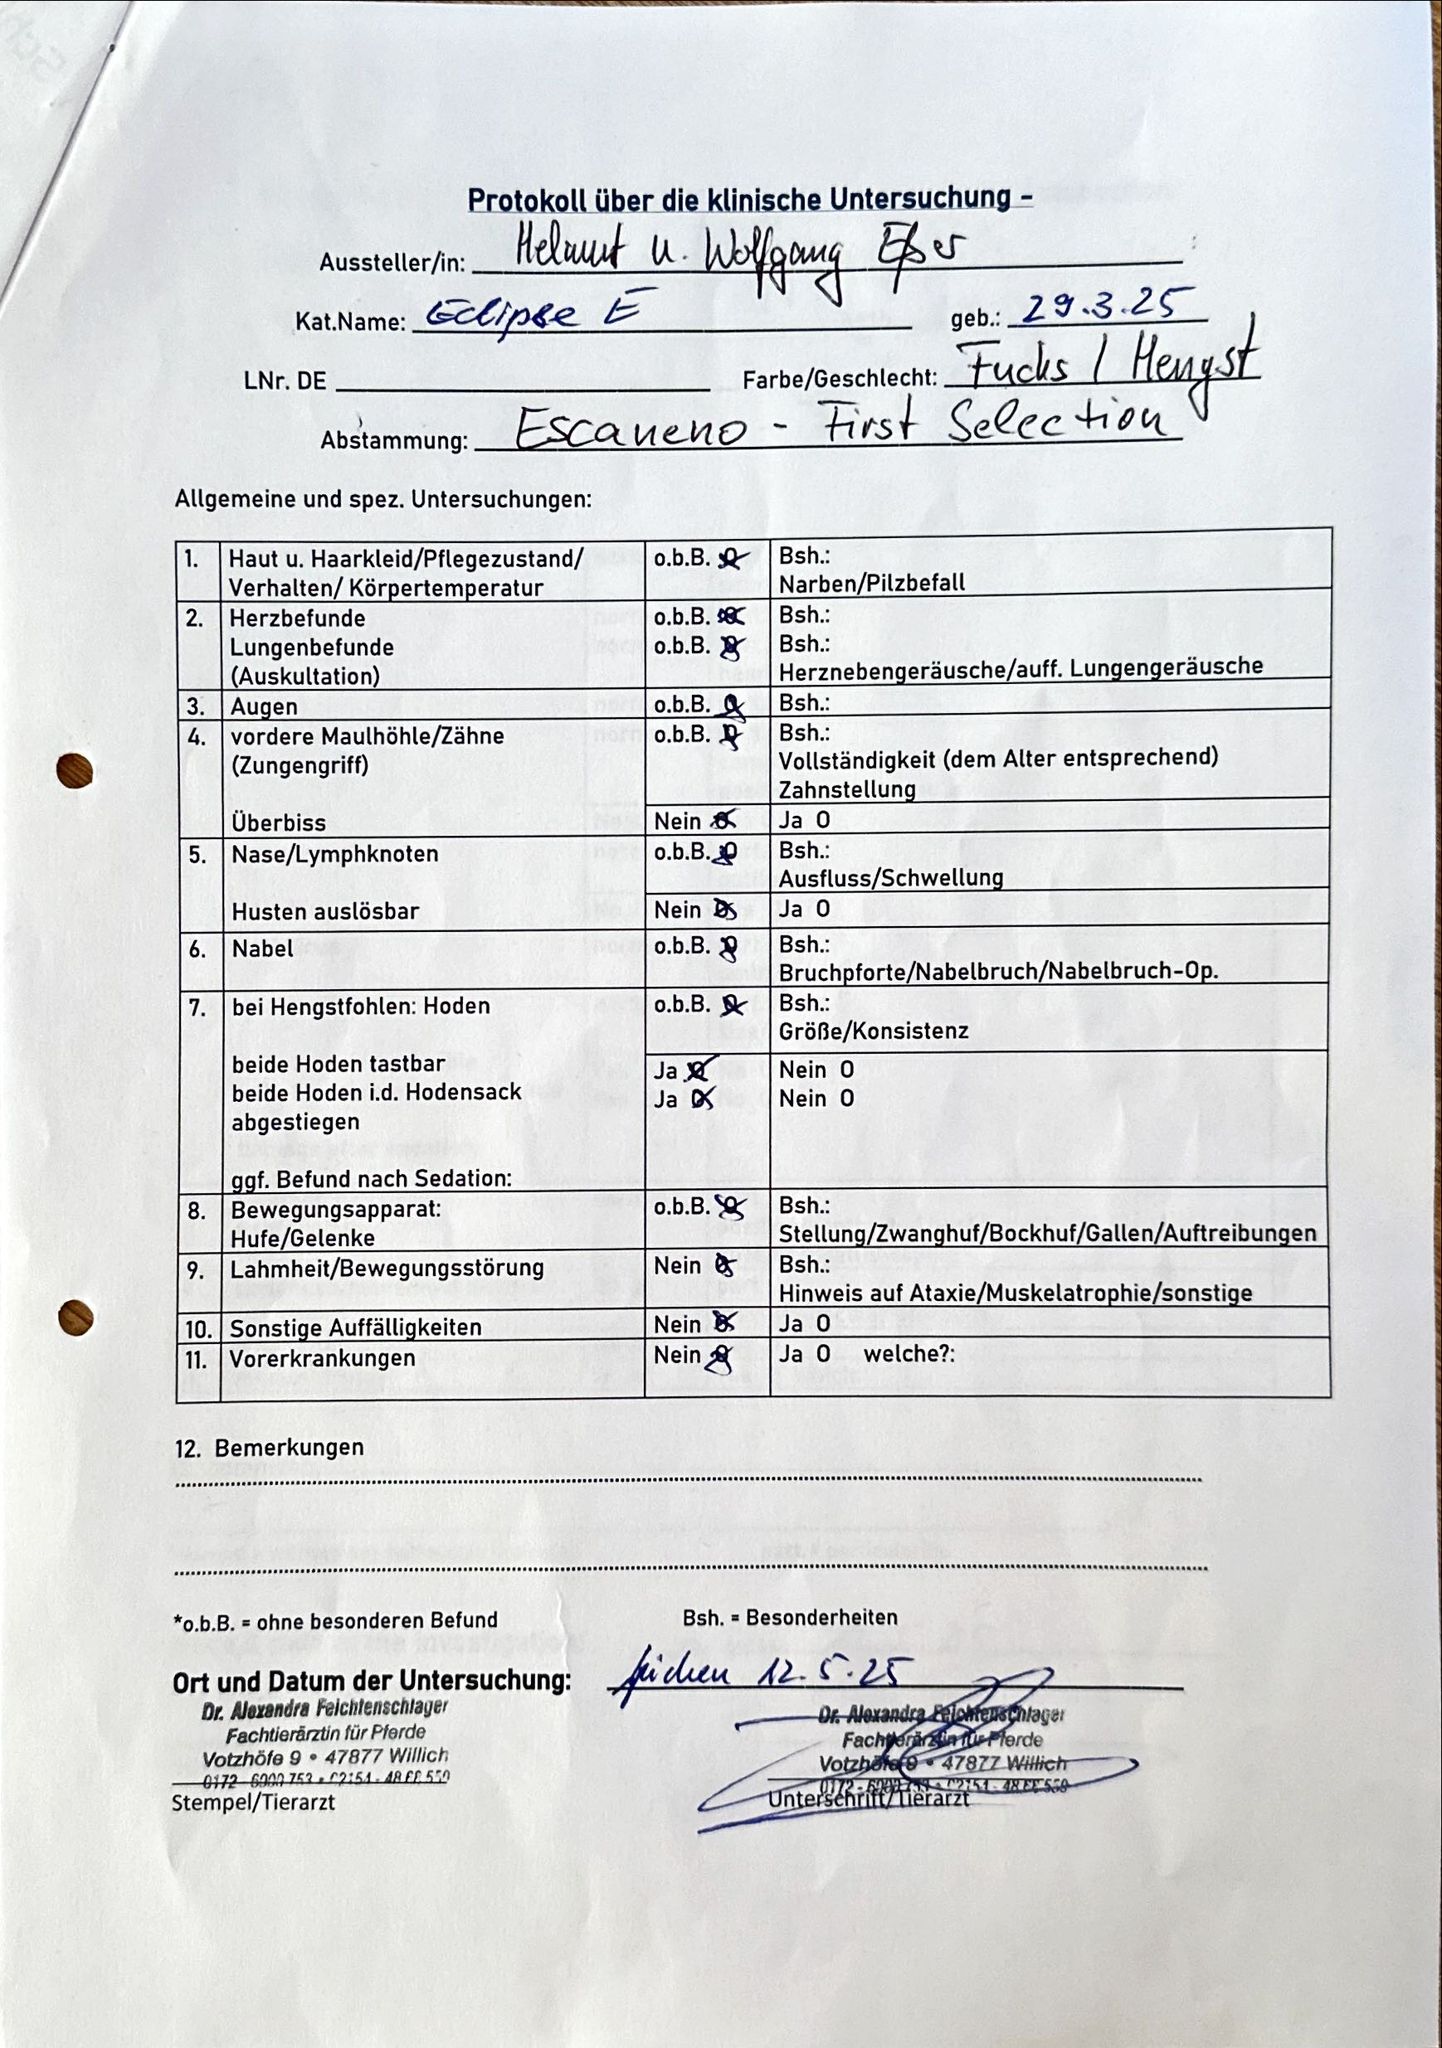 Protokoll über die klinische Untersuchung -
Aussteller/in: Helmut u. Wolfgang Eßer
Kat.Name: Eclipse E geb.: 29.3.25
LNr. DE Farbe/Geschlecht: Fuchs / Hengst
Abstammung: Escaneno - First Selection
Allgemeine und spez. Untersuchungen:
1. Haut u. Haarkleid/Pflegezustand/ o.b.B. O Bsh.:
Verhalten/ Körpertemperatur Narben/Pilzbefall
2. Herzbefunde o.b.B. O Bsh.:
Lungenbefunde o.b.B. O Bsh.:
(Auskultation) Herznebengeräusche/auff. Lungengeräusche
3. Augen o.b.B. O Bsh.:
4. vordere Maulhöhle/Zähne o.b.B. O Bsh.:
(Zungengriff) Vollständigkeit (dem Alter entsprechend)
Zahnstellung
Überbiss Nein O Ja O
5. Nase/Lymphknoten o.b.B. O Bsh.:
Ausfluss/Schwellung
Husten auslösbar Nein O Ja O
6. Nabel o.b.B. O Bsh.:
Bruchpforte/Nabelbruch/Nabelbruch-Op.
7. bei Hengstfohlen: Hoden o.b.B. O Bsh.:
Größe/Konsistenz
beide Hoden tastbar Ja O Nein O
beide Hoden i.d. Hodensack Ja O Nein O
abgestiegen
ggf. Befund nach Sedation:
8. Bewegungsapparat: o.b.B. O Bsh.:
Hufe/Gelenke Stellung/Zwanghuf/Bockhuf/Gallen/Auftreibungen
9. Lahmheit/Bewegungsstörung Nein O Bsh.:
Hinweis auf Ataxie/Muskelatrophie/sonstige
10. Sonstige Auffälligkeiten Nein O Ja O
11. Vorerkrankungen Nein O Ja O welche?:
12. Bemerkungen
*o.b.B. = ohne besonderen Befund Bsh. = Besonderheiten
Ort und Datum der Untersuchung: 12.5.25
Dr. Alexandra Feichtenschlager Dr. Alexandra Feichtenschlager
Fachtierärztin für Pferde Fachtierärztin für Pferde
Votzhöfe 9 • 47877 Willich Votzhöfe 9 • 47877 Willich
Stempel/Tierarzt Unterschrift/Tierarzt